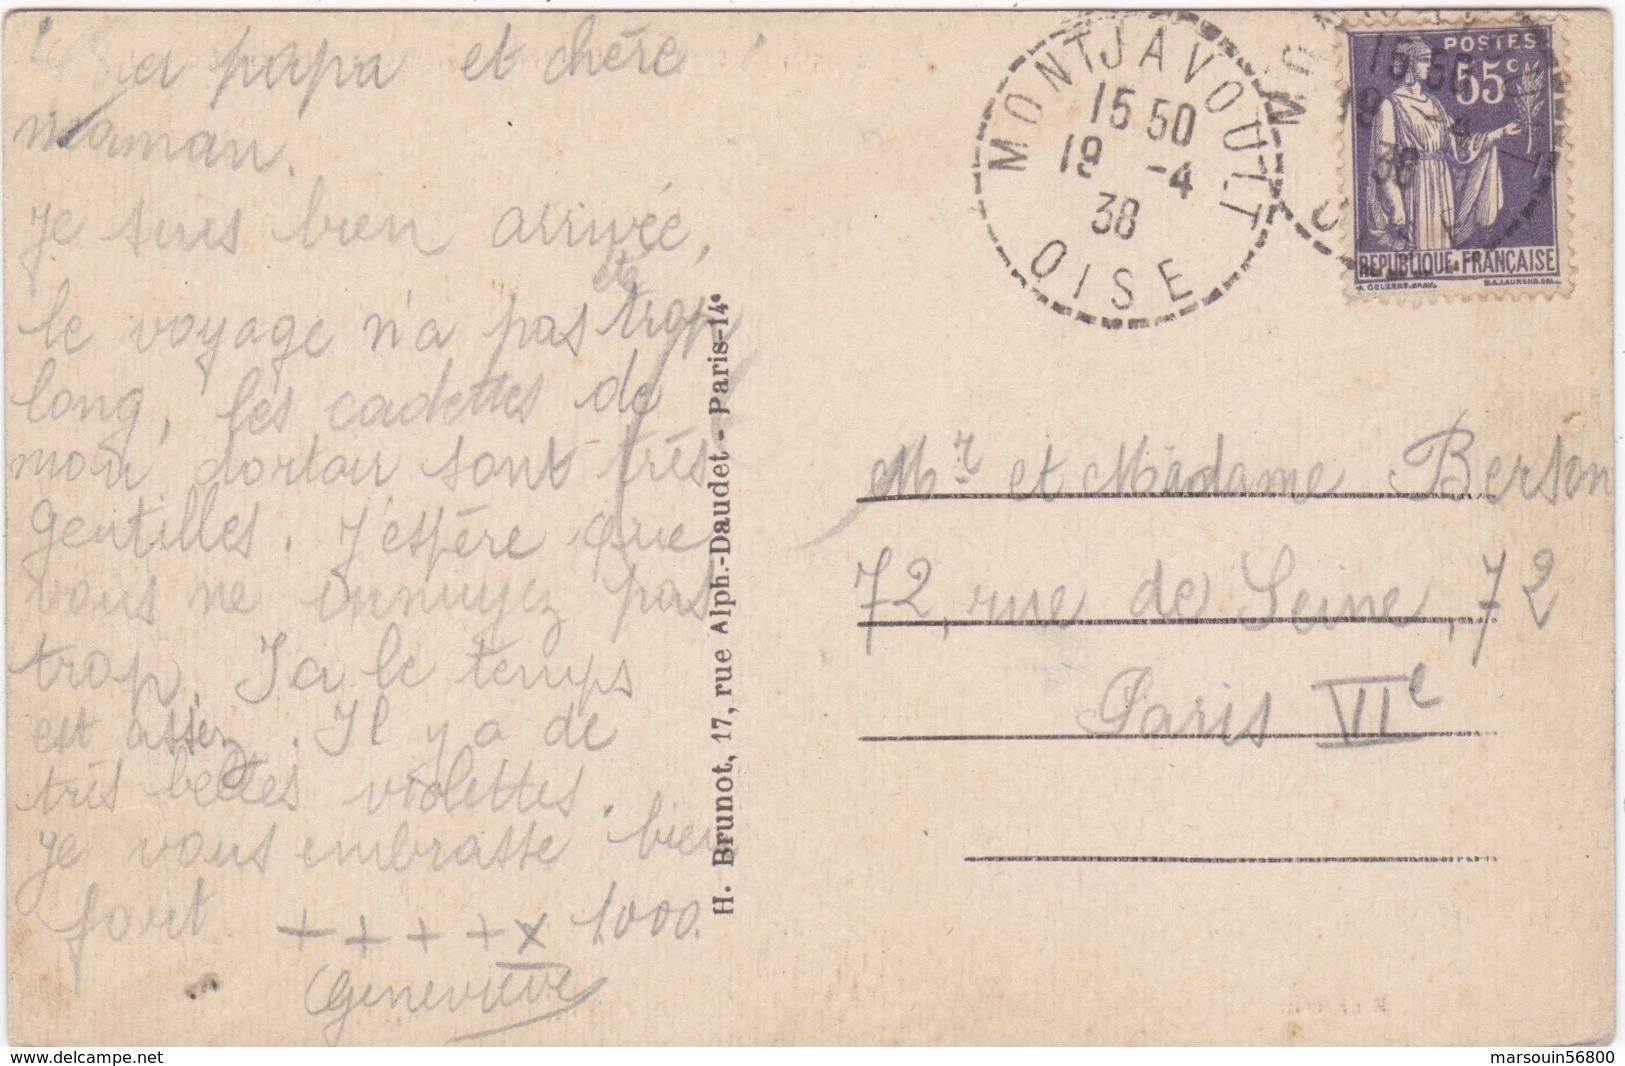 papa et chère
maman.
Je suis bien arrivée,
été
le voyage n'a pas trop
long, les cadettes de
mon dortoir sont très
gentilles. J'espère que
vous ne ennuyez pas
trop. Ici le temps
est assez. Il y a de
très belles violettes.
Je vous embrasse bien
fort ++++x 1000.
Geneviève
H. Brunot, 17, rue Alph.-Daudet - Paris-14e
MONTJAVOULT
15 50
19 -4
38
OISE
POSTES
55c
15 50
19 -4
38
REPUBLIQUE FRANÇAISE
Mr et Madame Berson
72, rue de Seine, 72
Paris VIe
www.delcampe.net
marsouin56800